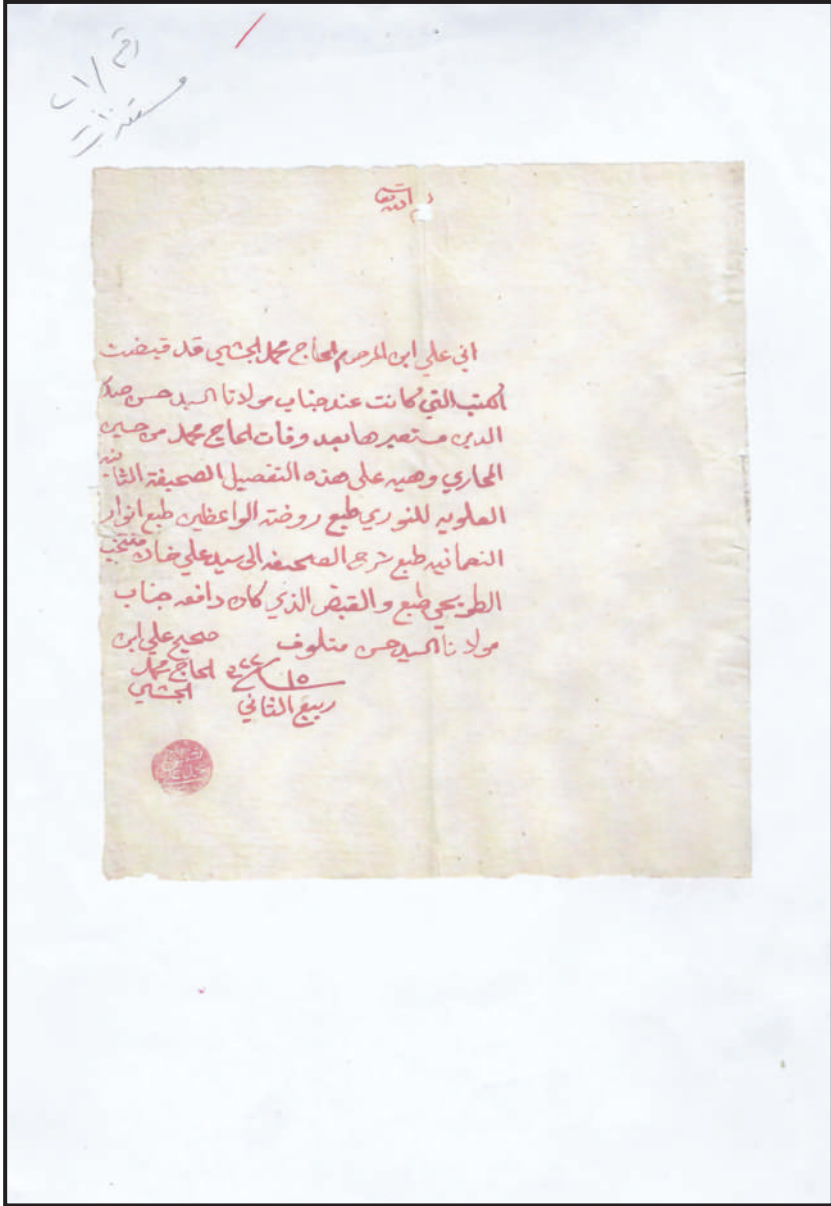 رقم ١/ب
مستندات
بسم الله تعالى
اني علي ابن المرحوم الحاج محمد الجشي قد قبضت
الكتب التي كانت عند جناب مولانا السيد حسن صدر
الدين مستعيرها بعد وفات الحاج محمد من حسين
وهيه على هذه التفصيل الصحيفة الثانيه
العلويه للنوري طبع روضة الواعظين طبع انوار
النعمانيه طبع شرح الصحيفه الى سيد علي خان منتخب
الطريحي طبع والقبض الذي كان دافعه جناب
مولانا السيد حسن متلوف صحيح علي ابن
الحاج محمد
الجشي
١٥
ربيع الثاني